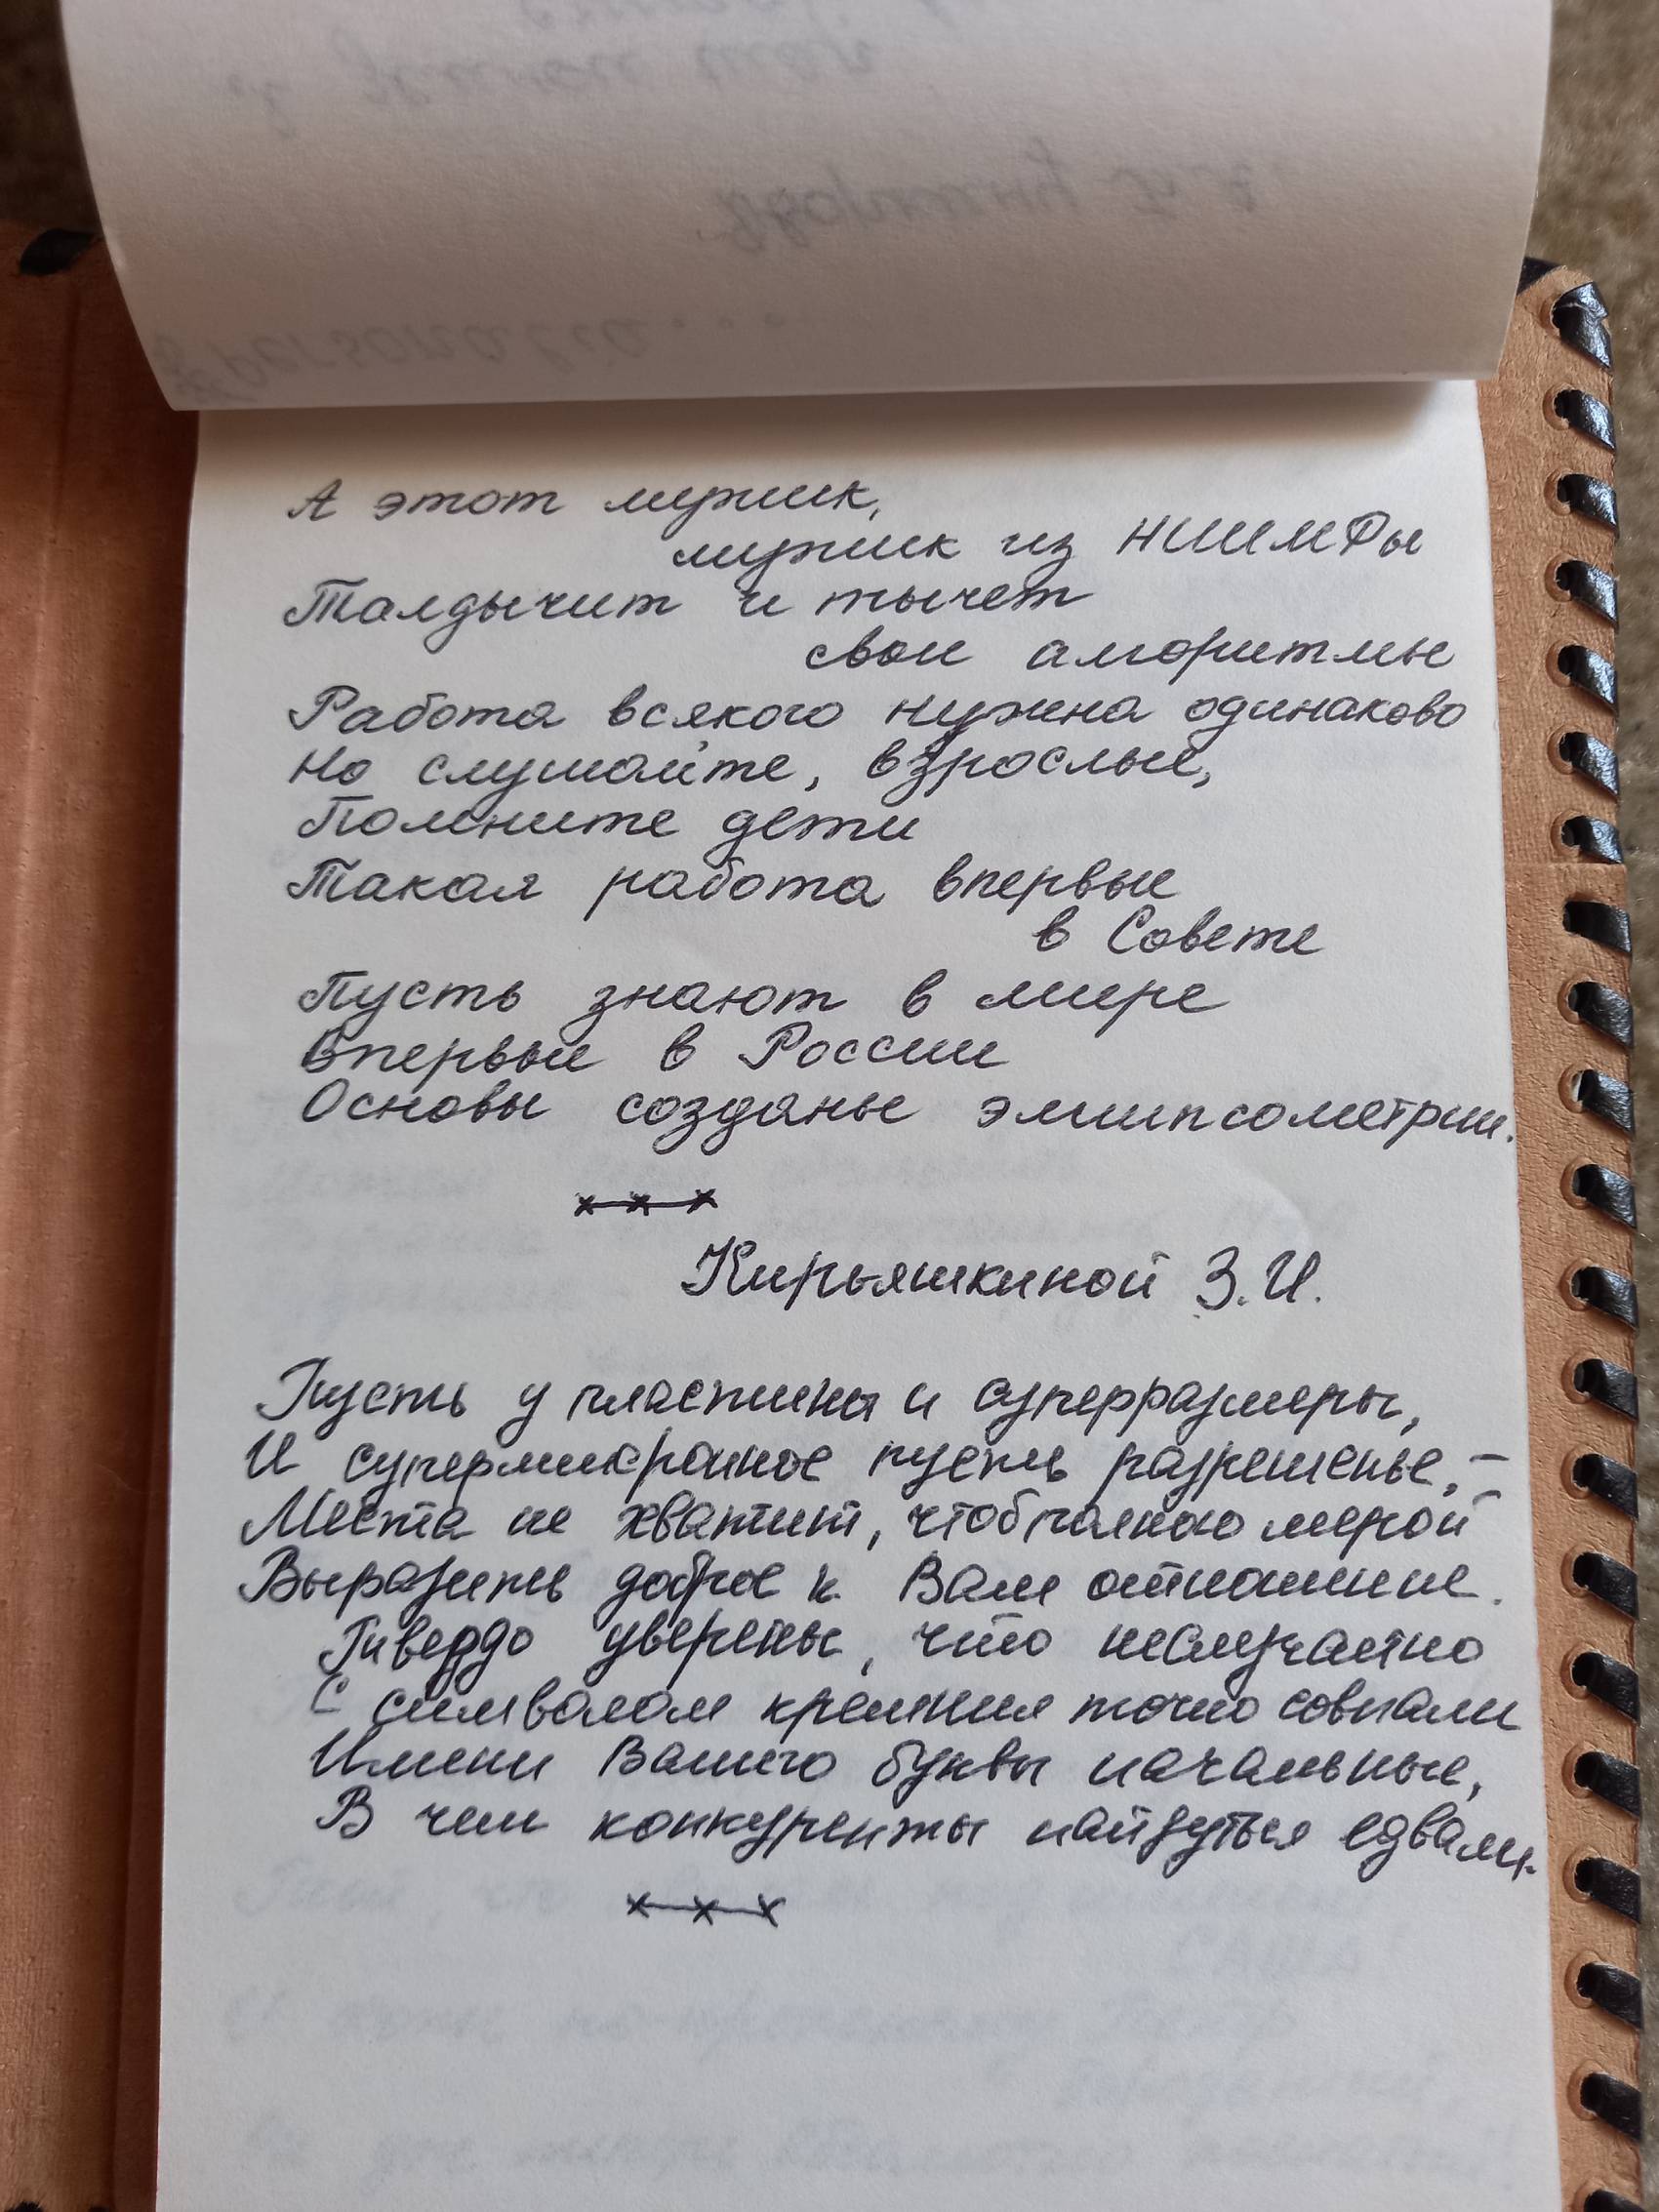 А этот мужик,
мужик из НИИМФы
Талдычит и тычет
свои алгоритмы
Работа всякого нужна одинаково
Но слушайте, взрослые,
Помните дети
Такая работа впервые
в Совете
Пусть знают в мире
Впервые в России
Основы созданы эллипсометрии.
х х х
Кирьяшкиной З.И.
Пусть у пластины и суперразмеры,
И супермикронное пусть разрешенье, –
Места не хватит, чтоб полною мерой
Выразить доброе к Вам отношение.
Твердо уверены, что неслучайно
С символом кремния точно совпали
Имени Вашего буквы начальные,
В чем конкуренты найдутся едва ли.
х х х